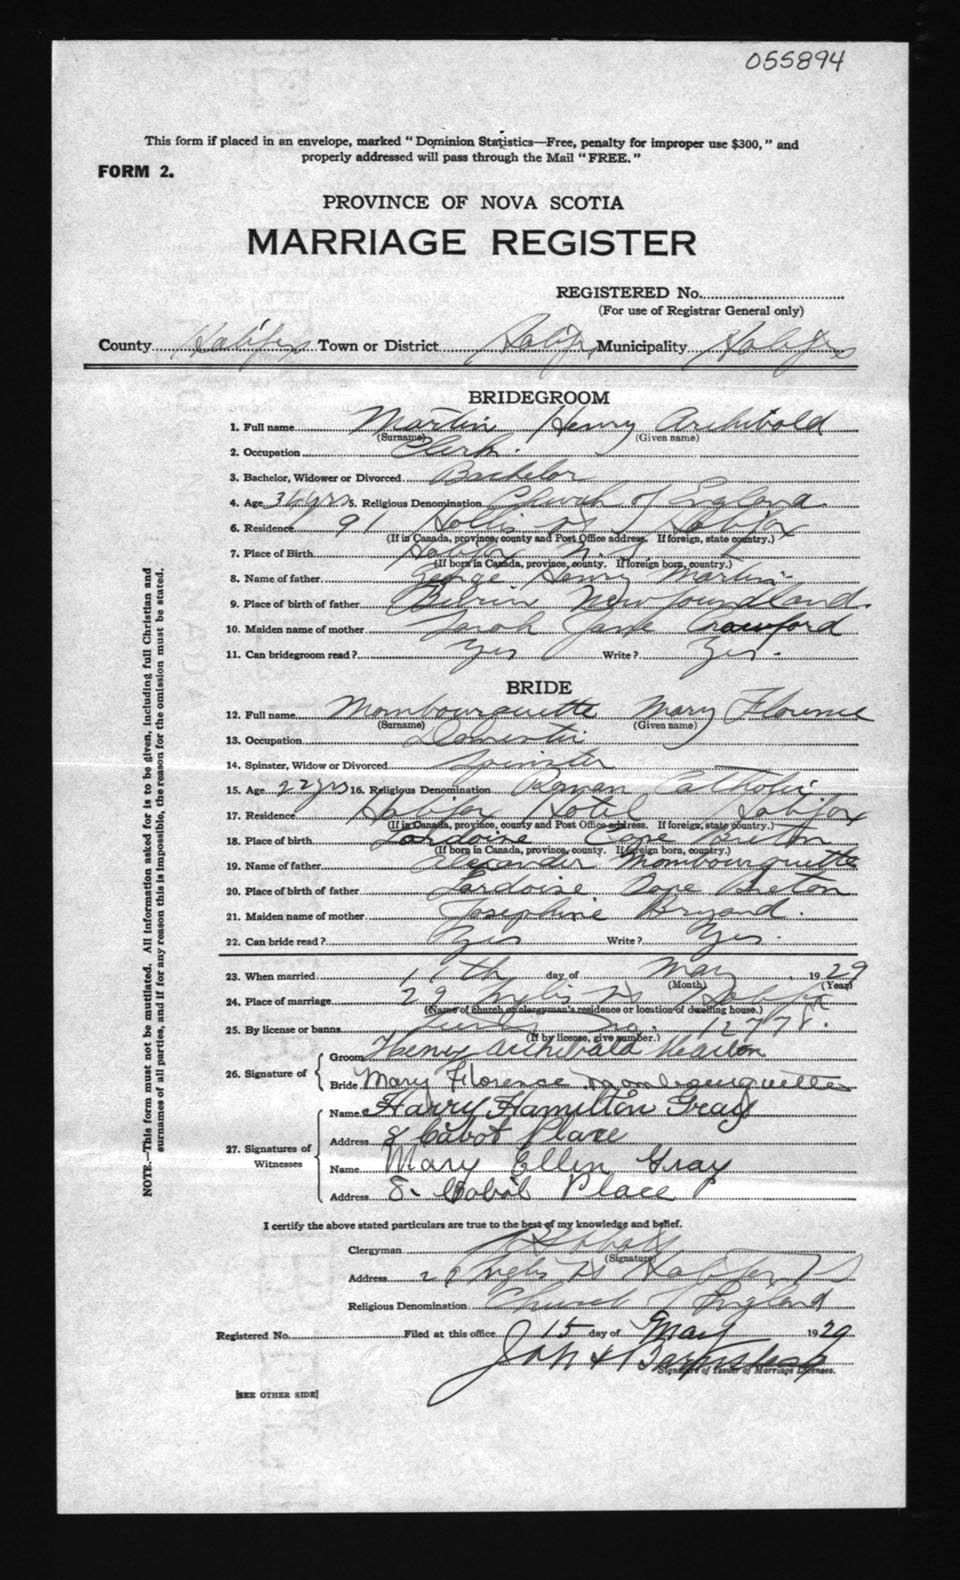 055894
This form if placed in an envelope, marked "Dominion Statistics—Free, penalty for improper use $300," and
properly addressed will pass through the Mail "FREE."
FORM 2.
PROVINCE OF NOVA SCOTIA
MARRIAGE REGISTER
REGISTERED No.
(For use of Registrar General only)
County Halifax Town or District Halifax Municipality Halifax
BRIDEGROOM
1. Full name Martin Henry Archibald
(Surname) (Given name)
2. Occupation Clerk.
3. Bachelor, Widower or Divorced Bachelor
4. Age 36 yrs 5. Religious Denomination Church of England
6. Residence 91 Hollis St Halifax
(If in Canada, province, county and Post Office address. If foreign, state country.)
7. Place of Birth Halifax N.S.
(If born in Canada, province, county. If foreign born, country.)
8. Name of father George Henry Martin
9. Place of birth of father Newfoundland
10. Maiden name of mother Sarah Jane Crawford
11. Can bridegroom read? Yes Write? Yes.
BRIDE
12. Full name Mombourquette Mary Florence
(Surname) (Given name)
13. Occupation Domestic
14. Spinster, Widow or Divorced Spinster
15. Age 22 yrs 16. Religious Denomination Roman Catholic
17. Residence Halifax Hotel Halifax
(If in Canada, province, county and Post Office address. If foreign, state country.)
18. Place of birth Lardoise Cape Breton
(If born in Canada, province, county. If foreign born, country.)
19. Name of father Alexander Mombourquette
20. Place of birth of father Lardoise Cape Breton
21. Maiden name of mother Josephine Bryand.
22. Can bride read? Yes Write? Yes.
23. When married day of May 1929
(Month) (Year)
24. Place of marriage 29 Inglis St Halifax
(Name of church or clergyman's residence or location of dwelling house.)
25. By license or banns No. 12778.
(If by license, give number.)
26. Signature of
Groom Henry Archibald Martin
Bride Mary Florence Mombourquette
27. Signatures of Witnesses
Name Harry Hamilton Gray
Address 8 Cabot Place
Name Mary Ellen Gray
Address 8. Cabot Place
I certify the above stated particulars are true to the best of my knowledge and belief.
Clergyman
(Signature)
Address 29 Inglis St Halifax N S
Religious Denomination Church of England
Registered No. Filed at this office 15 day of May 1929
Signature of Issuer of Marriage Licenses.
[SEE OTHER SIDE]
NOTE.—This form must not be mutilated. All information asked for is to be given, including full Christian and
surnames of all parties, and if for any reason this is impossible, the reason for the omission must be stated.